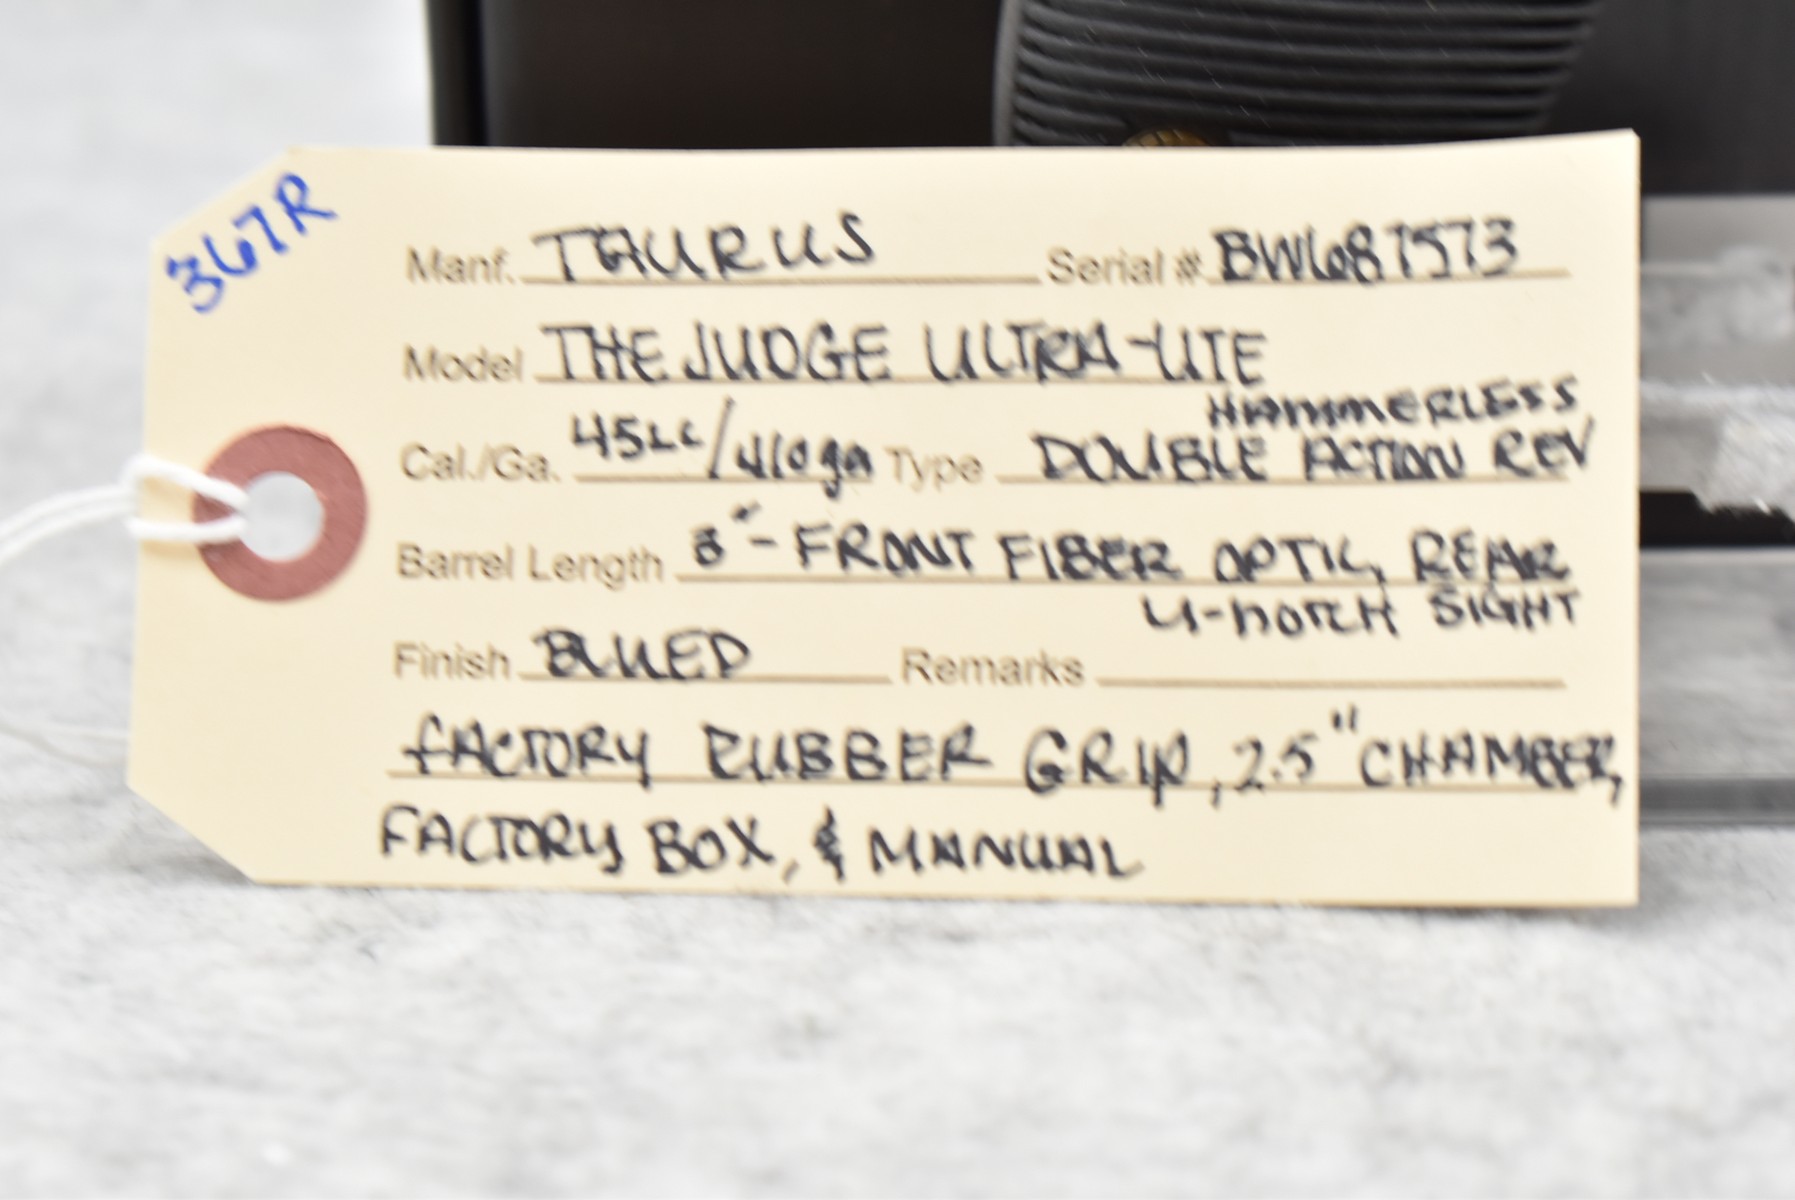 367R
Manf. TAURUS Serial # BW687573
Model THE JUDGE ULTRA-LITE
HAMMERLESS
Cal./Ga. 45LC/410ga Type DOUBLE ACTION REV
Barrel Length 3" - FRONT FIBER OPTIC, REAR
U-NOTCH SIGHT
Finish BLUED Remarks
FACTORY RUBBER GRIP, 2.5" CHAMBER,
FACTORY BOX, & MANUAL